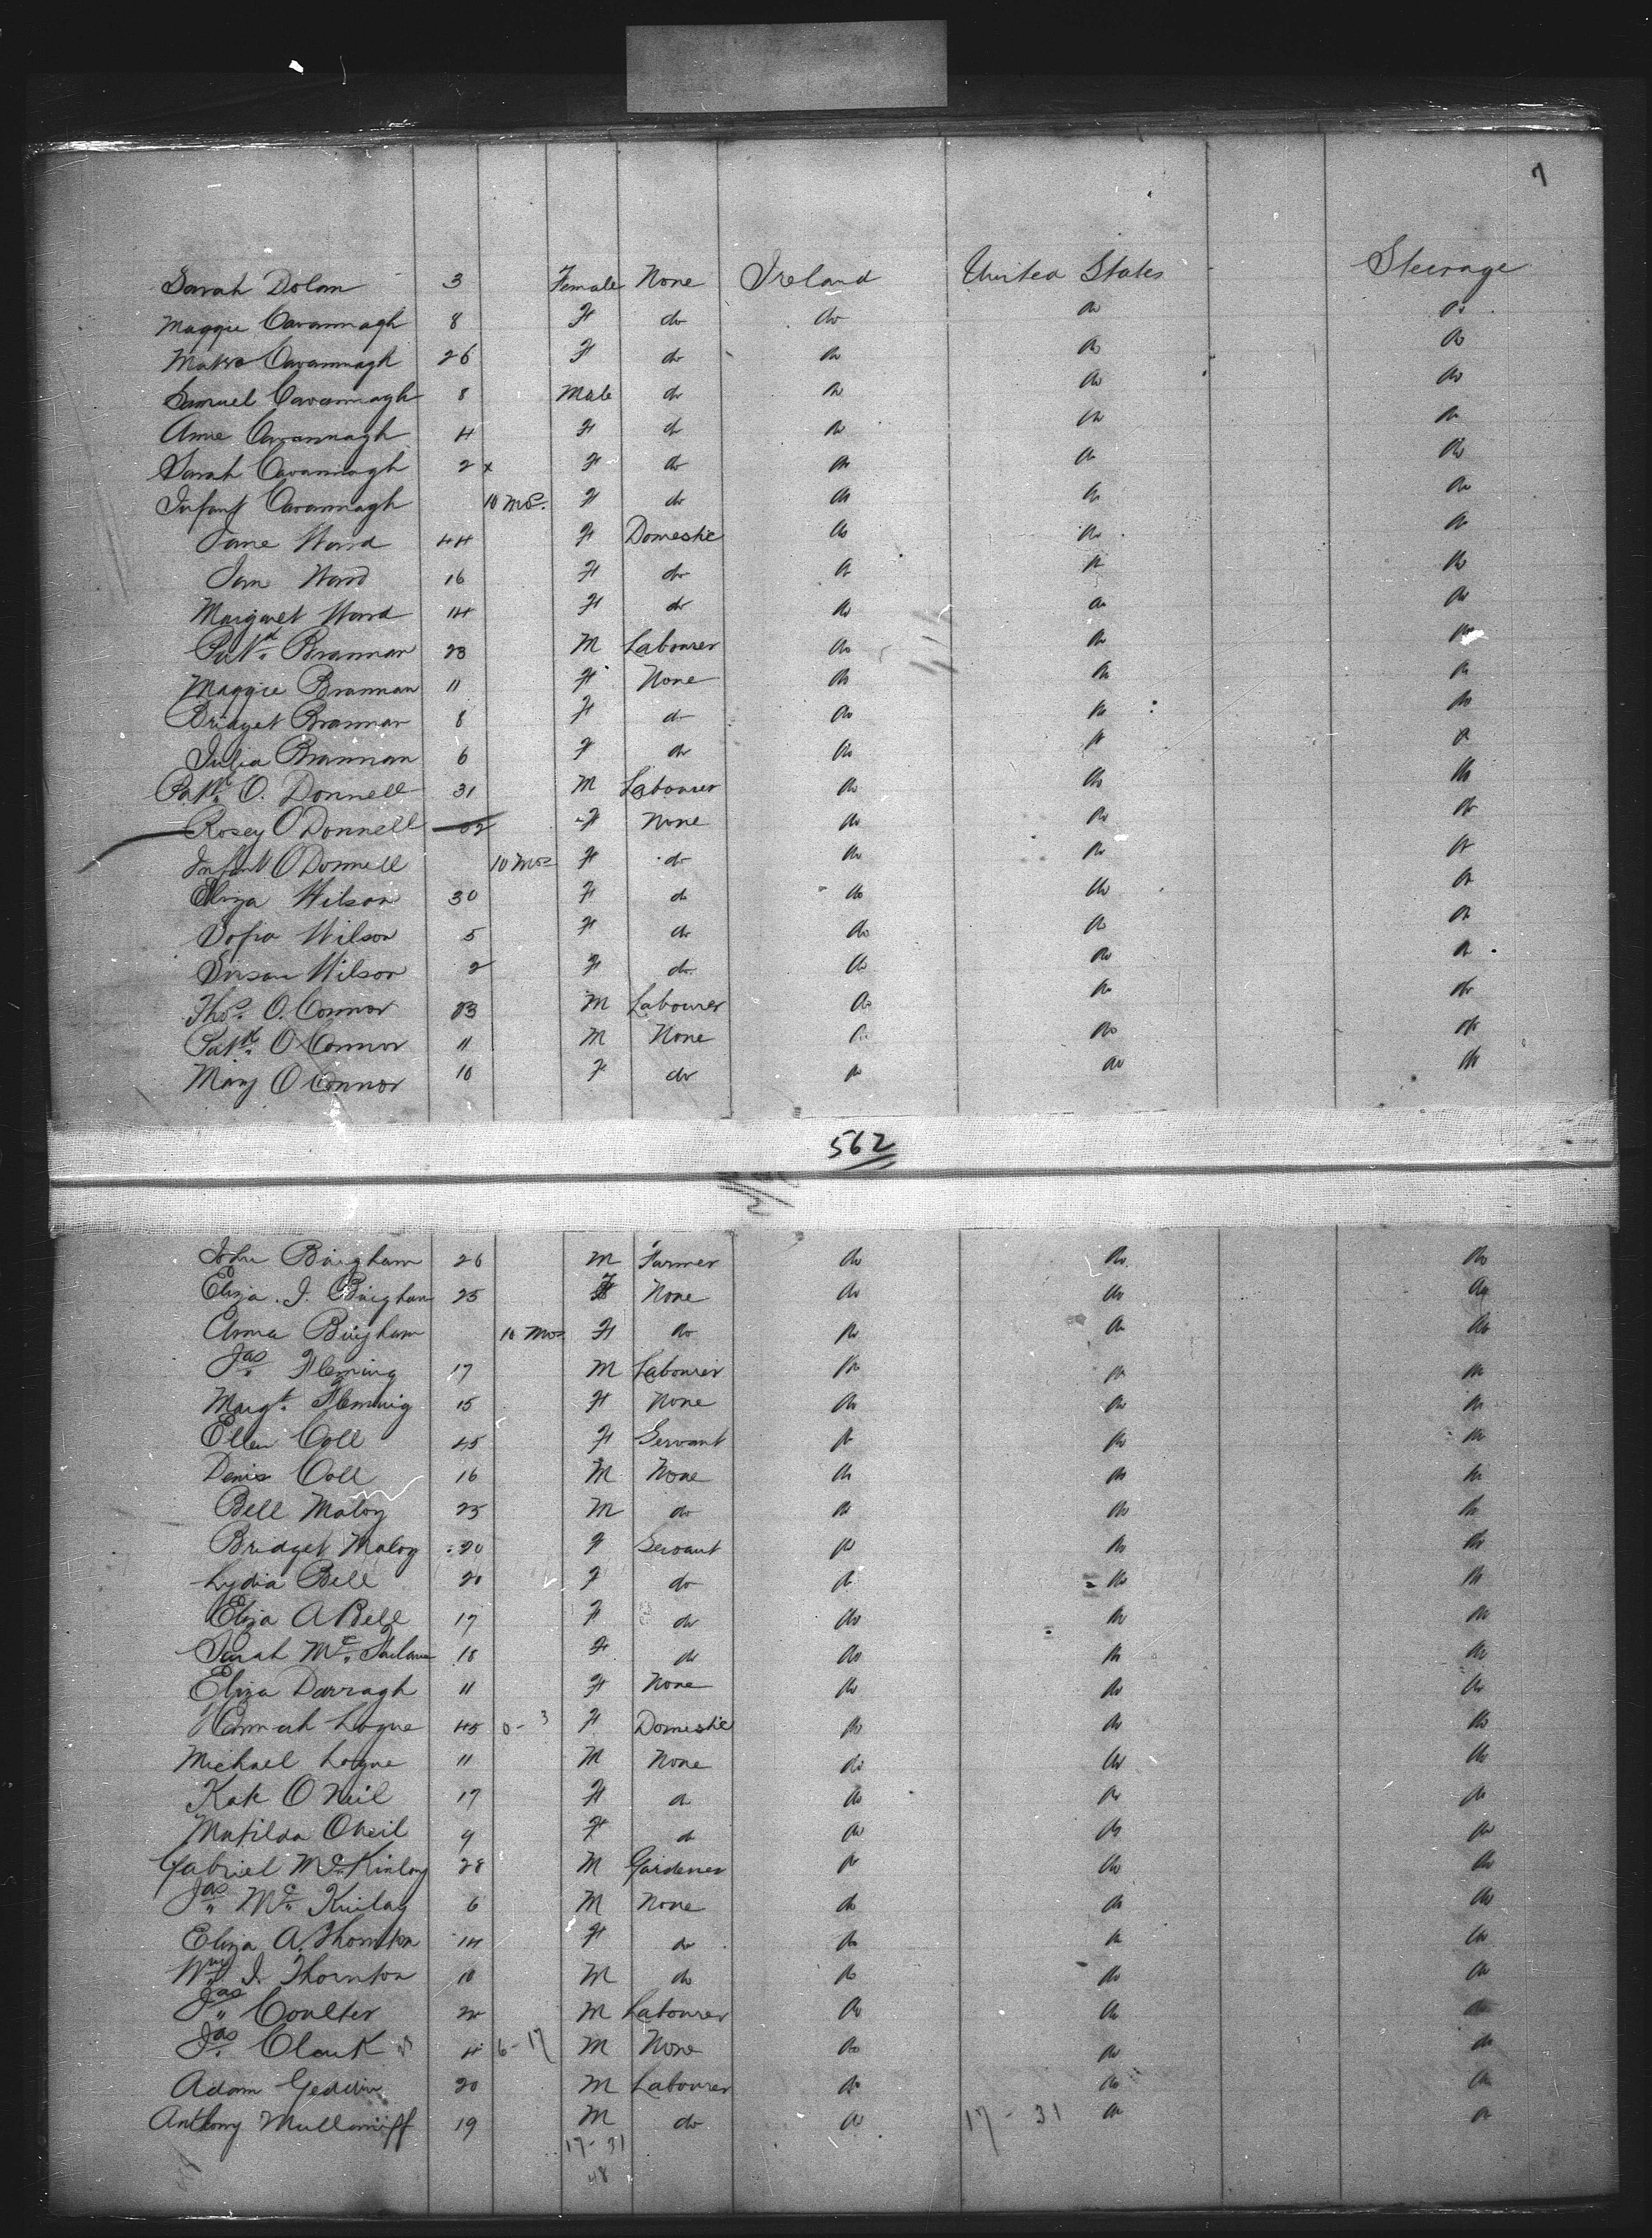 7
Sarah Dolan 3 Female None Ireland United States Steerage
Maggie Cavannagh 8 F do do do do
Cavannagh 26 F do do do do
Samuel Cavannagh 8 Male do do do do
Anne Cavannagh 4 F do do do do
Sarah Cavannagh 2 x F do do do do
Infant Cavannagh 10 Mos. F do do do do
Jane Ward 44 F Domestic do do do
Ward 16 F do do do do
Margaret Ward 14 F do do do do
Patk. Brannan 23 M Labourer do do do
Maggie Brannan 11 F None do do do
Bridget Brannan 8 F do do do do
Julia Brannan 6 F do do do do
Patk. O. Donnell 31 M Labourer do do do
Rosey O Donnell F None do do do
Infant O Donnell 10 Mos F do do do do
Eliza Wilson 30 F do do do do
Wilson 5 F do do do do
Susan Wilson 2 F do do do do
Thos. O. Connor M Labourer do do do
Patk. O Connor 11 M None do do do
Mary O Connor 10 F do do do do
562
John Bingham 26 M Farmer do do do
Eliza. J. Bingham 25 F None do do do
Anna Bingham 10 Mos. F do do do do
Jas. Fleming 17 M Labourer do do do
Margt. Fleming 15 F None do do do
Ellen Coll 45 F Servant do do do
Denis Coll 16 M None do do do
Bell Maloy 25 M do do do do
Bridget Maloy 20 F Servant do do do
Lydia Bell 20 F do do do do
Eliza A Bell 17 F do do do do
Sarah Mc. 18 F do do do do
Eliza Darragh 11 F None do do do
Hannah Logue 45 0 - 3 F Domestic do do do
Michael Logue 11 M None do do do
Kate O Neil 17 F do do do do
Matilda O Neil 9 F do do do do
Gabriel Mc. Kinlay 28 M Gardener do do do
Jas. Mc. Kinlay 6 M None do do do
Eliza A. Thornton 14 F do do do do
Wm. J. Thornton 10 M do do do do
Jas. Coulter M Labourer do do do
Jas. Clark 4 6 - 17 M None do do do
Adam 20 M Labourer do do do
Anthony 19 M do do 17 - 31 do do
17 - 31
48